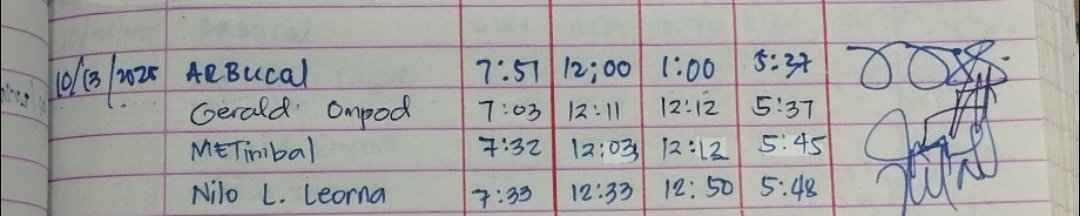 10/13/2025 ARBucal 7:51 12:00 1:00 5:37
Gerald Ompod 7:03 12:11 12:12 5:37
METinibal 7:32 12:03 12:12 5:45
Nilo L. Leorna 7:33 12:33 12:50 5:48